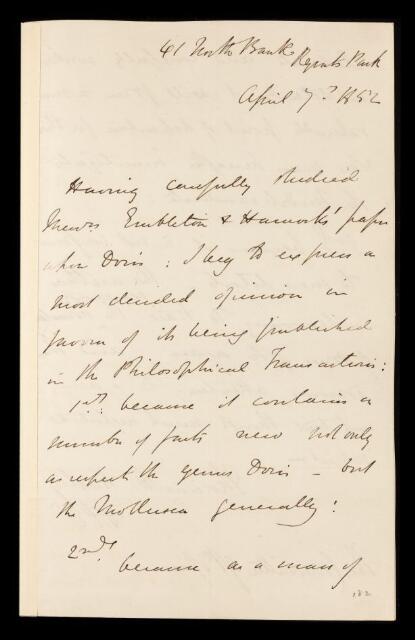 41 North Bank Regents Park
April 7th 1852
Having carefully studied
Messrs Embleton & Hancock's paper
upon Doris: I beg to express a
most decided opinion in
favour of its being published
in the Philosophical Transactions:
1st: because it contains a
number of facts new not only
as respects the genus Doris – but
the Mollusca generally:
2ndly because as a mass of
182